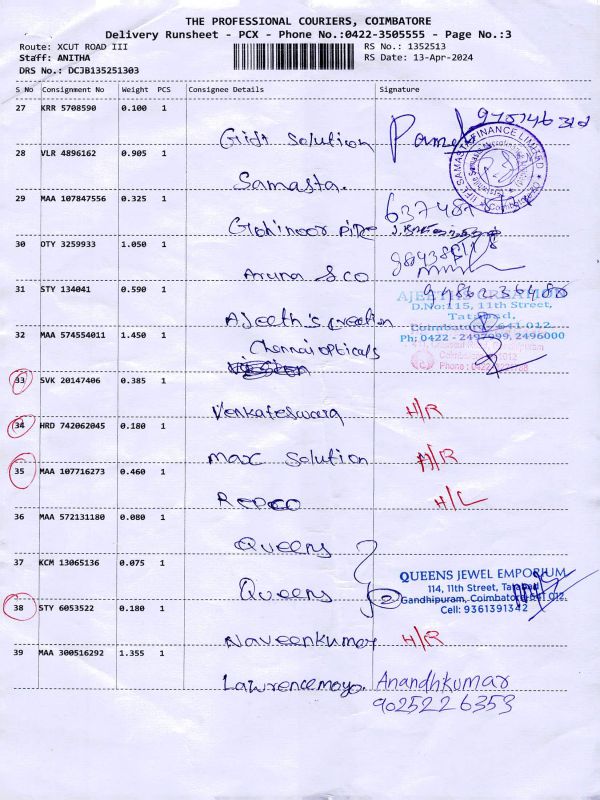 THE PROFESSIONAL COURIERS, COIMBATORE
Delivery Runsheet - PCX - Phone No.:0422-3505555 - Page No.:3
Route: XCUT ROAD III
RS No.: 1352513
Staff: ANITHA
RS Date: 13-Apr-2024
DRS No.: DCJB135251303
S No Consignment No Weight PCS Consignee Details Signature
27 KRR 5708590 0.100 1
Solution
28 VLR 4896162 0.905 1
IIFL SAMASTA FINANCE LIMITED
Samasta.
29 MAA 107847556 0.325 1
30 OTY 3259933 1.050 1
Aruna & CO
31 STY 134041 0.590 1
D.No:115, 11th Street,
Tatabad,
Ajeeth's creation
Coimbatore - 641 012.
32 MAA 574554011 1.450 1
Ph: 0422 - 2497099, 2496000
Chennai opticals
33 SVK 20147406 0.385 1
Venkateswara H/R
34 HRD 742062045 0.180 1
Max Solution H/R
35 MAA 107716273 0.460 1
Repco H/L
36 MAA 572131180 0.080 1
Queens
37 KCM 13065136 0.075 1
QUEENS JEWEL EMPORIUM
114, 11th Street, Tatabad
Queens 2 Gandhipuram, Coimbatore-641 012.
38 STY 6053522 0.180 1
Cell: 9361391342
Naveenkumar H/R
39 MAA 300516292 1.355 1
Lawrencemayo. Anandhkumar
9025226353